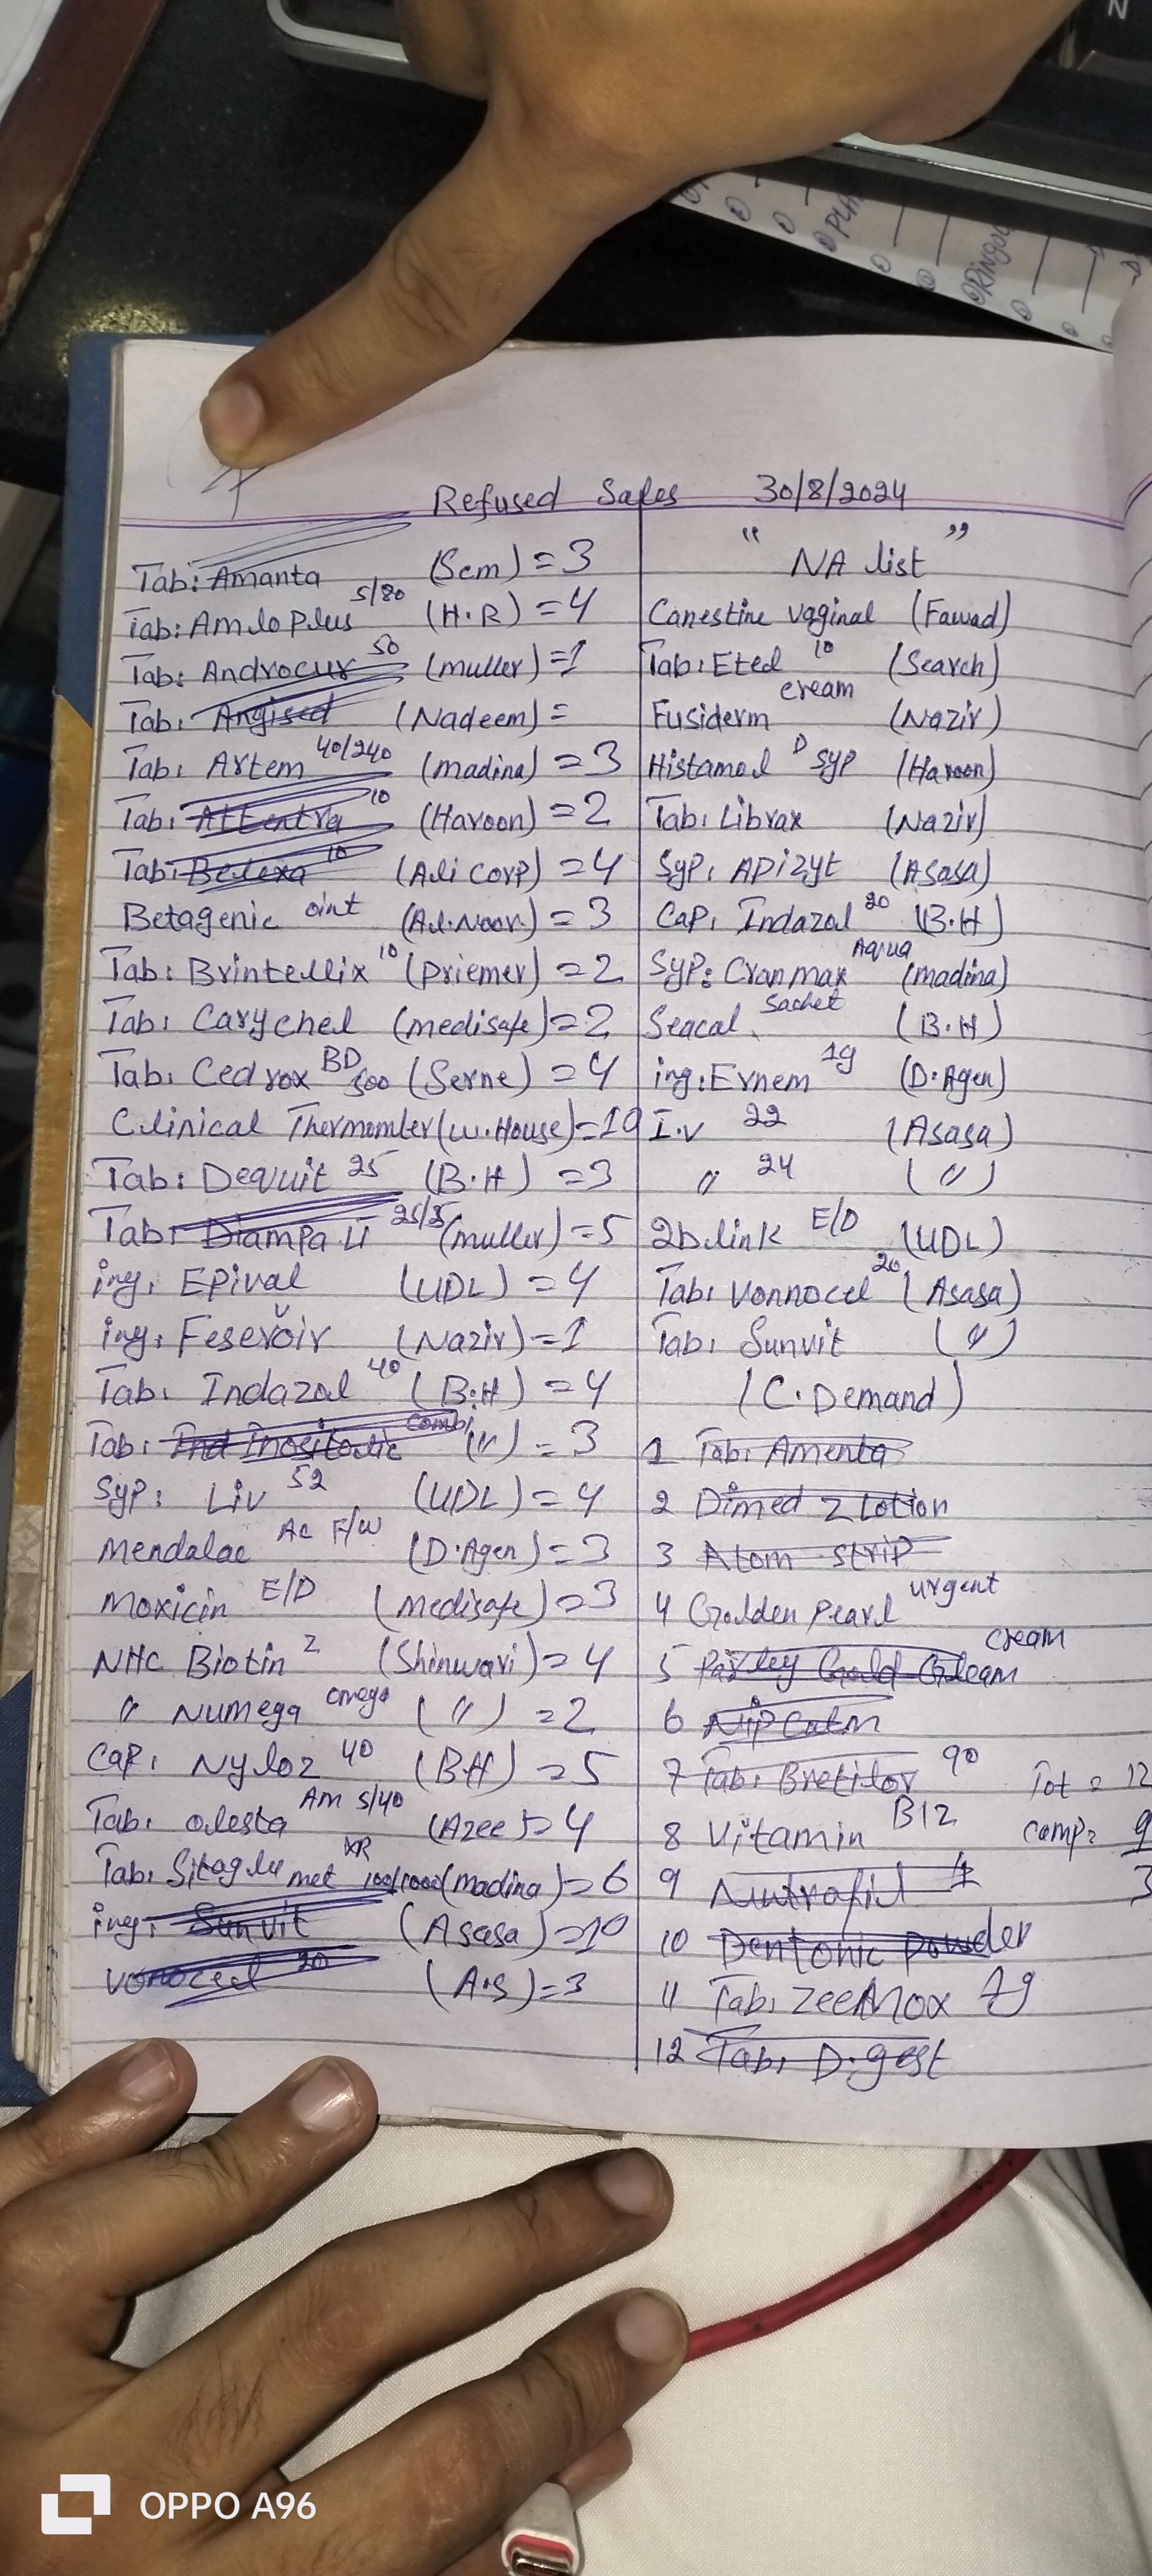 Refused Sales 30/8/2024
Tab: Amanta (Sem) = 3
Tab: Amlo Plus 5/80 (H.R) = 4
Tab: Androcur 50 (muller) = 1
Tab: Angised (Nadeem) =
Tab: Artem 40/240 (madina) = 3
Tab: Attentra 10 (Haroon) = 2
Tab: Belexa 10 (Ali Corp) = 4
Betagenic oint (Al.Noor) = 3
Tab: Brintellix 10 (Priemer) = 2
Tab: Carychel (medisafe) = 2
Tab: Cedrox BD 500 (Serne) = 4
Clinical Thermomter (W.House) = 10
Tab: Dequit 25 (B.H) = 3
Tab: Diampa (muller) = 5
inj: Epival (UDL) = 4
inj: (Nazir) = 1
Tab: Indazol 40 (B.H) = 4
Tab: Combi (〃) = 3
Syp: Liv 52 (UDL) = 4
Mendalac Ac F/W (D.Agen) = 3
Moxicin E/D (Medisafe) = 3
NHC Biotin 2 (Shinwari) = 4
〃 Numega omega (〃) = 2
Cap: Nyloz 40 (B.H) = 5
Tab: Olesta Am 5/40 (Azee) = 4
Tab: Sitaglu met XR 100/1000 (madina) = 6
inj: Sunvit (Asasa) = 10
Vonocel 20 (A.S) = 3
“ ”
NA list
Canestine vaginal (Fawad)
Tab: Eted 10 (Search)
Fusiderm cream (Nazir)
Histamol D Syp (Haroon)
Tab: Librax (Nazir)
Syp: Apizyt (Asasa)
Cap: Indazol 20 (B.H)
Syp: Cranmax Aqua (madina)
Seacal Sachet (B.H)
inj: Ernem 1g (D.Agen)
I.V 22 (Asasa)
〃 24 (〃)
2blink E/D (UDL)
Tab: Vonnocel 20 (Asasa)
Tab: Sunvit (〃)
(C.Demand)
1 Tab: Amenta
2 Dimed Z Lotion
3 Atom strip
4 Golden Pearl urgent
5 Parley Gold Cream cream
6
7 Tab: Bretilor 90 Tot = 12
8 Vitamin B12 Comp = 9
9 Nutrafil 1 3
10 Dentonic Powder
11 Tab: ZeeMox 1g
12 Tab: D.gest
OPPO A96